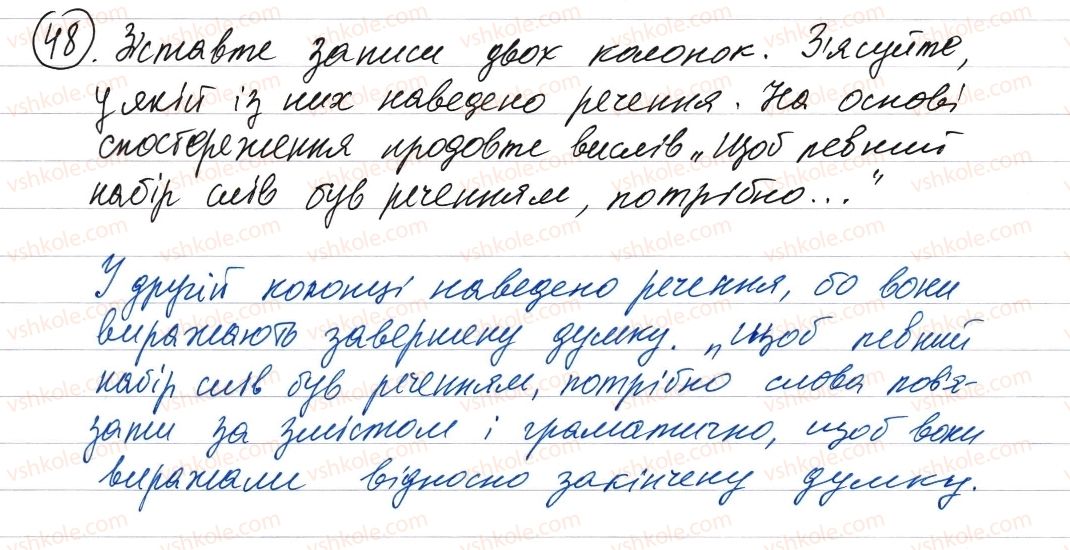 48. Зіставте записи двох колонок. З'ясуйте,
у якій із них наведено речення. На основі
спостереження продовте вислів „Щоб певний
набір слів був реченням, потрібно..."
У другій колонці наведено речення, бо вони
виражають завершену думку. „Щоб певний
набір слів був реченням, потрібно слова пов'я-
зати за змістом і граматично, щоб вони
виражали відносно закінчену думку.